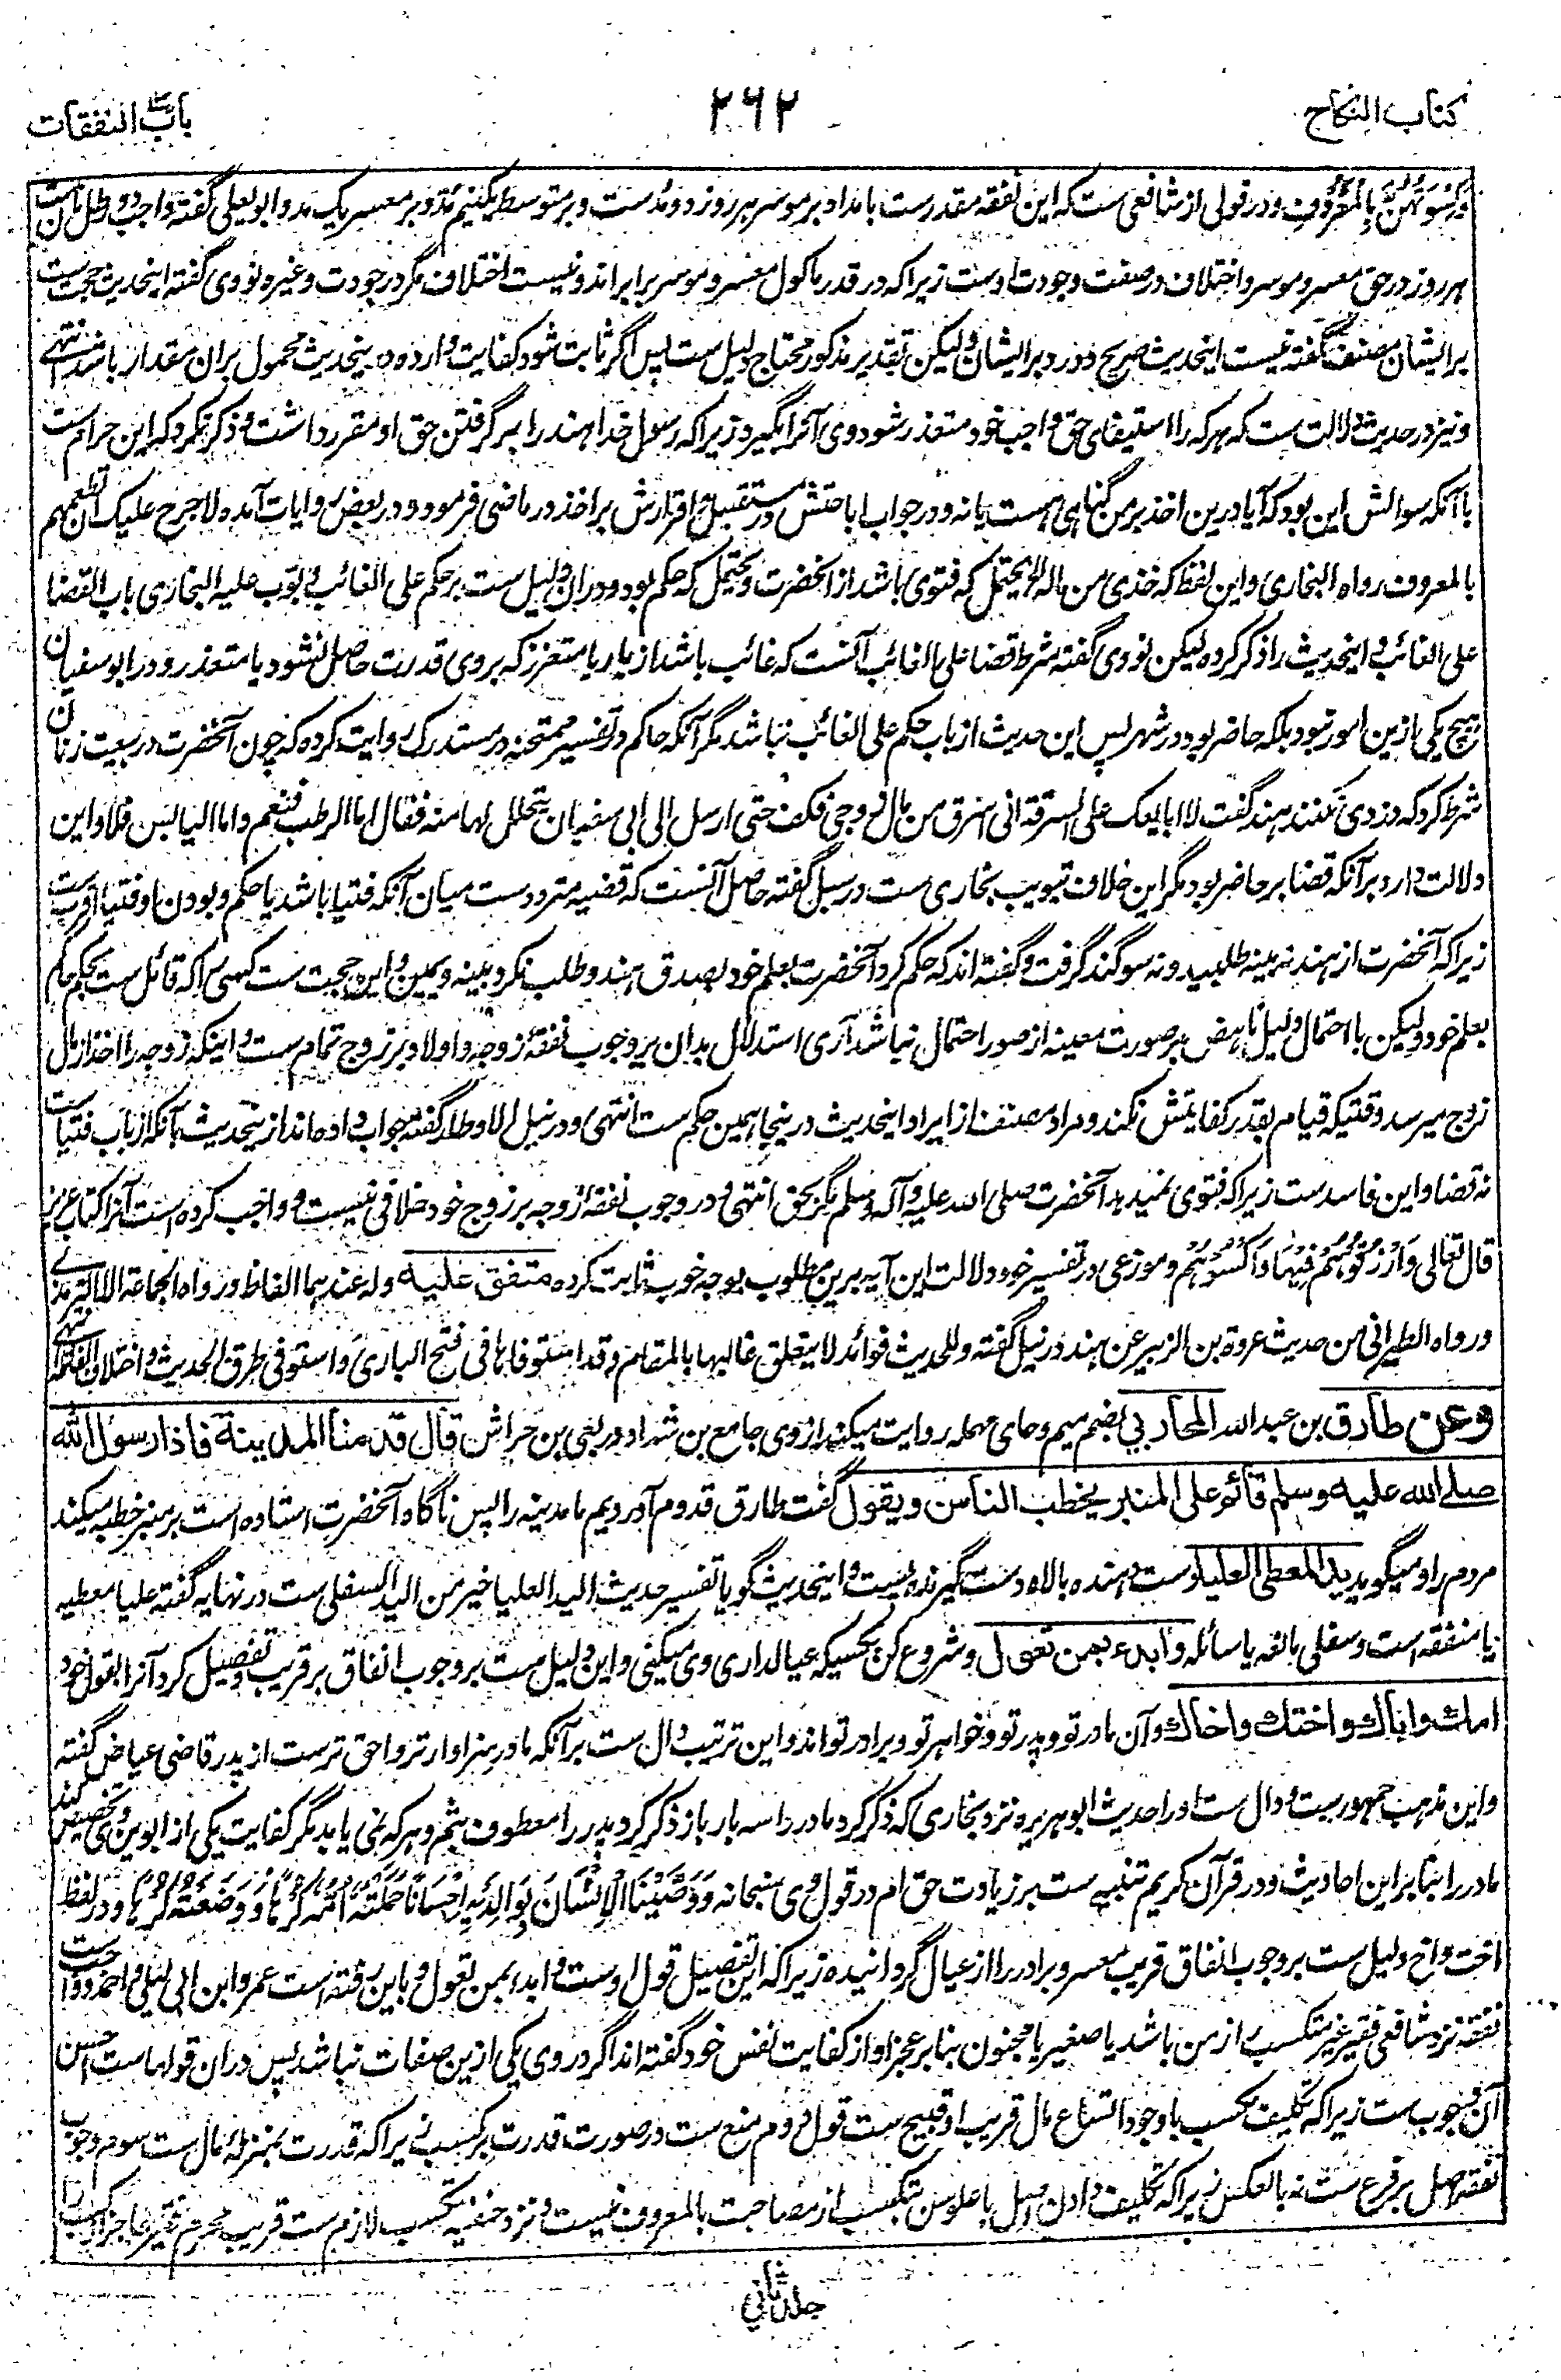 کتاب النکاح
۲۶۲
باب النفقات
وَکِسْوَتُهُنَّ بِالْمَعْرُوْفِ ودر قولی از شافعی ست که این نفقه مقدرست بامداد بر موسر هر روز دو مُدست وبر متوسط یکنیم مُدّ وبر معسر یک مد و ابو یعلی گفته واجب دو رطل نان ست
هر روز در حق معسر و موسر و اختلاف در صفت وجودت اوست زیرا که در قدر ماکول معسر و موسر برابر اند و نیست اختلاف مگر در جودت وغیره نووی گفته اینحدیث حجت ست
بر ایشان مصنف گفته نیست اینحدیث صریح در رد بر ایشان ولیکن تقدیر مذکور محتاج دلیل ست پس اگر ثابت شود کفایت وارده در ینحدیث محمول بران مقدار باشد انتهی
ونیز در حدیث دلالت ست که هر که را استیفای حق واجب خود متعذر شود وی آنرا بگیرد زیرا که رسول خدا هند را بر گرفتن حق او مقرر داشت و ذکر نکرد که این حرام ست
با آنکه سوالش این بود که آیا درین اخذ بر من گناهی هست یا نه ودر جواب اباحتش در مستقبل و اقرارش بر اخذ در ماضی فرمود ودر بعض روایات آمده لا حرج علیک ان تطعمیهم
بالمعروف رواه البخاری واین لفظ که خذی من ماله الخ یحتمل که فتوی باشد از آنحضرت ویحتمل که حکم بود ودران دلیل ست بر حکم علی الغائب وبوب علیه البخاری باب القضا
علی الغائب و اینحدیث را ذکر کرده لیکن نووی گفته شرط قضا علی الغائب آنست که غائب باشد از بلد یا متعزز که بروی قدرت حاصل نشود یا متعذر ودر ابو سفیان
هیچ یکی ازین امور نبود بلکه حاضر بود در شهر پس این حدیث از باب حکم علی الغائب نباشد مگر آنکه حاکم در تفسیر ممتحنه در مستدرک روایت کرده که چون آنحضرت در بیعت زنان
شرط کرد که دزدی نکنند هند گفت لا ابایعک علی السرقة انی اسرق من مال زوجی فکف حتی ارسل الی ابی سفیان یتحلل لها منه فقال اما الرطب فنعم واما الیابس فلا واین
دلالت دارد بر آنکه قضا بر حاضر بود مگر این خلاف تبویب بخاری ست در سبل گفته حاصل آنست که قضیه متردد ست میان آنکه فتیا باشد یا حکم وبودن او فتیا اقرب ست
زیرا که آنحضرت از هند نه بینه طلبید ونه سوگند گرفت وگفته اند که حکم کرد آنحضرت بعلم خود بصدق هند وطلب نکرد بینه ویمین واین حجت ست کسی را که قائل ست بحکم حاکم
بعلم خود ولیکن با احتمال دلیل ناهض بر صورت معینه از صور احتمال نباشد آری استدلال بدان بر وجوب نفقهٔ زوجه واولاد بر زوج تمام ست و اینکه زوجه را اخذ از مال
زوج میرسد وقتیکه قیام بقدر کفایتش نکند ومراد مصنف از ایراد اینحدیث درینجا همین حکم ست انتهی ودر نیل الاوطار گفته جواب داده اند از ینحدیث بآنکه از باب فتیاست
نه قضا واین فاسد ست زیرا که فتوی نمیدهد آنحضرت صلی الله علیه وآله وسلم مگر بحق انتهی ودر وجوب نفقهٔ زوجه بر زوج خود خلافی نیست و واجب کرده است آنرا کتاب عزیز
قال تعالی وَارْزُقُوْهُمْ فِیْهَا وَاکْسُوْهُمْ وموزعی در تفسیر خود دلالت این آیه برین مطلوب بوجه خوب ثابت کرده متفق علیه وله عندهما الفاظ ورواه الجماعة الا الترمذی
ورواه الطبرانی من حدیث عروة بن الزبیر عن هند در نیل گفته وللحدیث فوائد لا یتعلق غالبها بالمقام وقد استوفاها فی فتح الباری واستوفی طرق الحدیث واختلاف الفاظه انتهی
وعن طارق بن عبد الله المحاربی بضم میم وحای مهمله روایت میکند از وی جامع بن شداد وربعی بن حراش قال قدمنا المدینة فاذا رسول الله
صلی الله علیه وسلم قائم علی المنبر یخطب الناس ویقول گفت طارق قدوم آوردیم ما مدینه را پس ناگاه آنحضرت استاده است بر منبر خطبه میکند
مردم را ومیگوید ید المعطی العلیا دست دهنده بالا و دست گیرنده پست واینحدیث گویا تفسیر حدیث الید العلیا خیر من الید السفلی ست در نهایه گفته علیا معطیه
یا منفقه است وسفلی مانعه یا سائله وابدء بمن تعول وشروع کن بکسیکه عیالداری وی میکنی واین دلیل ست بر وجوب انفاق بر قریب وتفصیل کرد آنرا بقول خود
امك واباك واختك واخاك وآن مادر تو وپدر تو وخواهر تو وبرادر تو اند واین ترتیب دال ست بر آنکه مادر سزاوار تر واحق ترست از پدر قاضی عیاض گفته
واین مذهب جمهور ست ودال ست او را حدیث ابو هریره نزد بخاری که ذکر کرد مادر را سه بار باز ذکر کرد پدر را معطوف بثم وهر که نمی یابد مگر کفایت یکی از ابوین وی تخصیص کند
مادر را بنا بر این احادیث ودر قرآن کریم تنبیه ست بر زیادت حق ام در قول وی سبحانه وَوَصَّیْنَا الْاِنْسَانَ بِوَالِدَیْهِ اِحْسَانًا حَمَلَتْهُ اُمُّهُ کُرْهًا وَّوَضَعَتْهُ کُرْهًا ودر لفظ
اخت واخ دلیل ست بر وجوب انفاق قریب معسر وبرادر را از عیال گردانیده زیرا که این تفصیل قول اوست وابدا بمن تعول وباین رفته است عمر وابن ابی لیلی واحمد وواجب ست
نفقه نزد شافعی فقیر غیر متکسب را زمن باشد یا صغیر یا مجنون بنا بر عجز او از کفایت نفس خود گفته اند اگر در وی یکی ازین صفات نباشد پس دران قولها ست احسن
آن وجوب ست زیرا که تکلیف تکسب با وجود اتساع مال قریب او قبیح ست قول دوم منع ست در صورت قدرت بر کسب زیرا که قدرت بمنزلهٔ مال ست سوم وجوب
نفقهٔ اصل بر فرع ست نه بالعکس زیرا که تکلیف دادن اصل با علو سن بکسب از مصاحبت بالمعروف نیست ونزد حنفیه تکسب لازم ست قریب محرم فقیر عاجز از کسب را
جلد ثانی